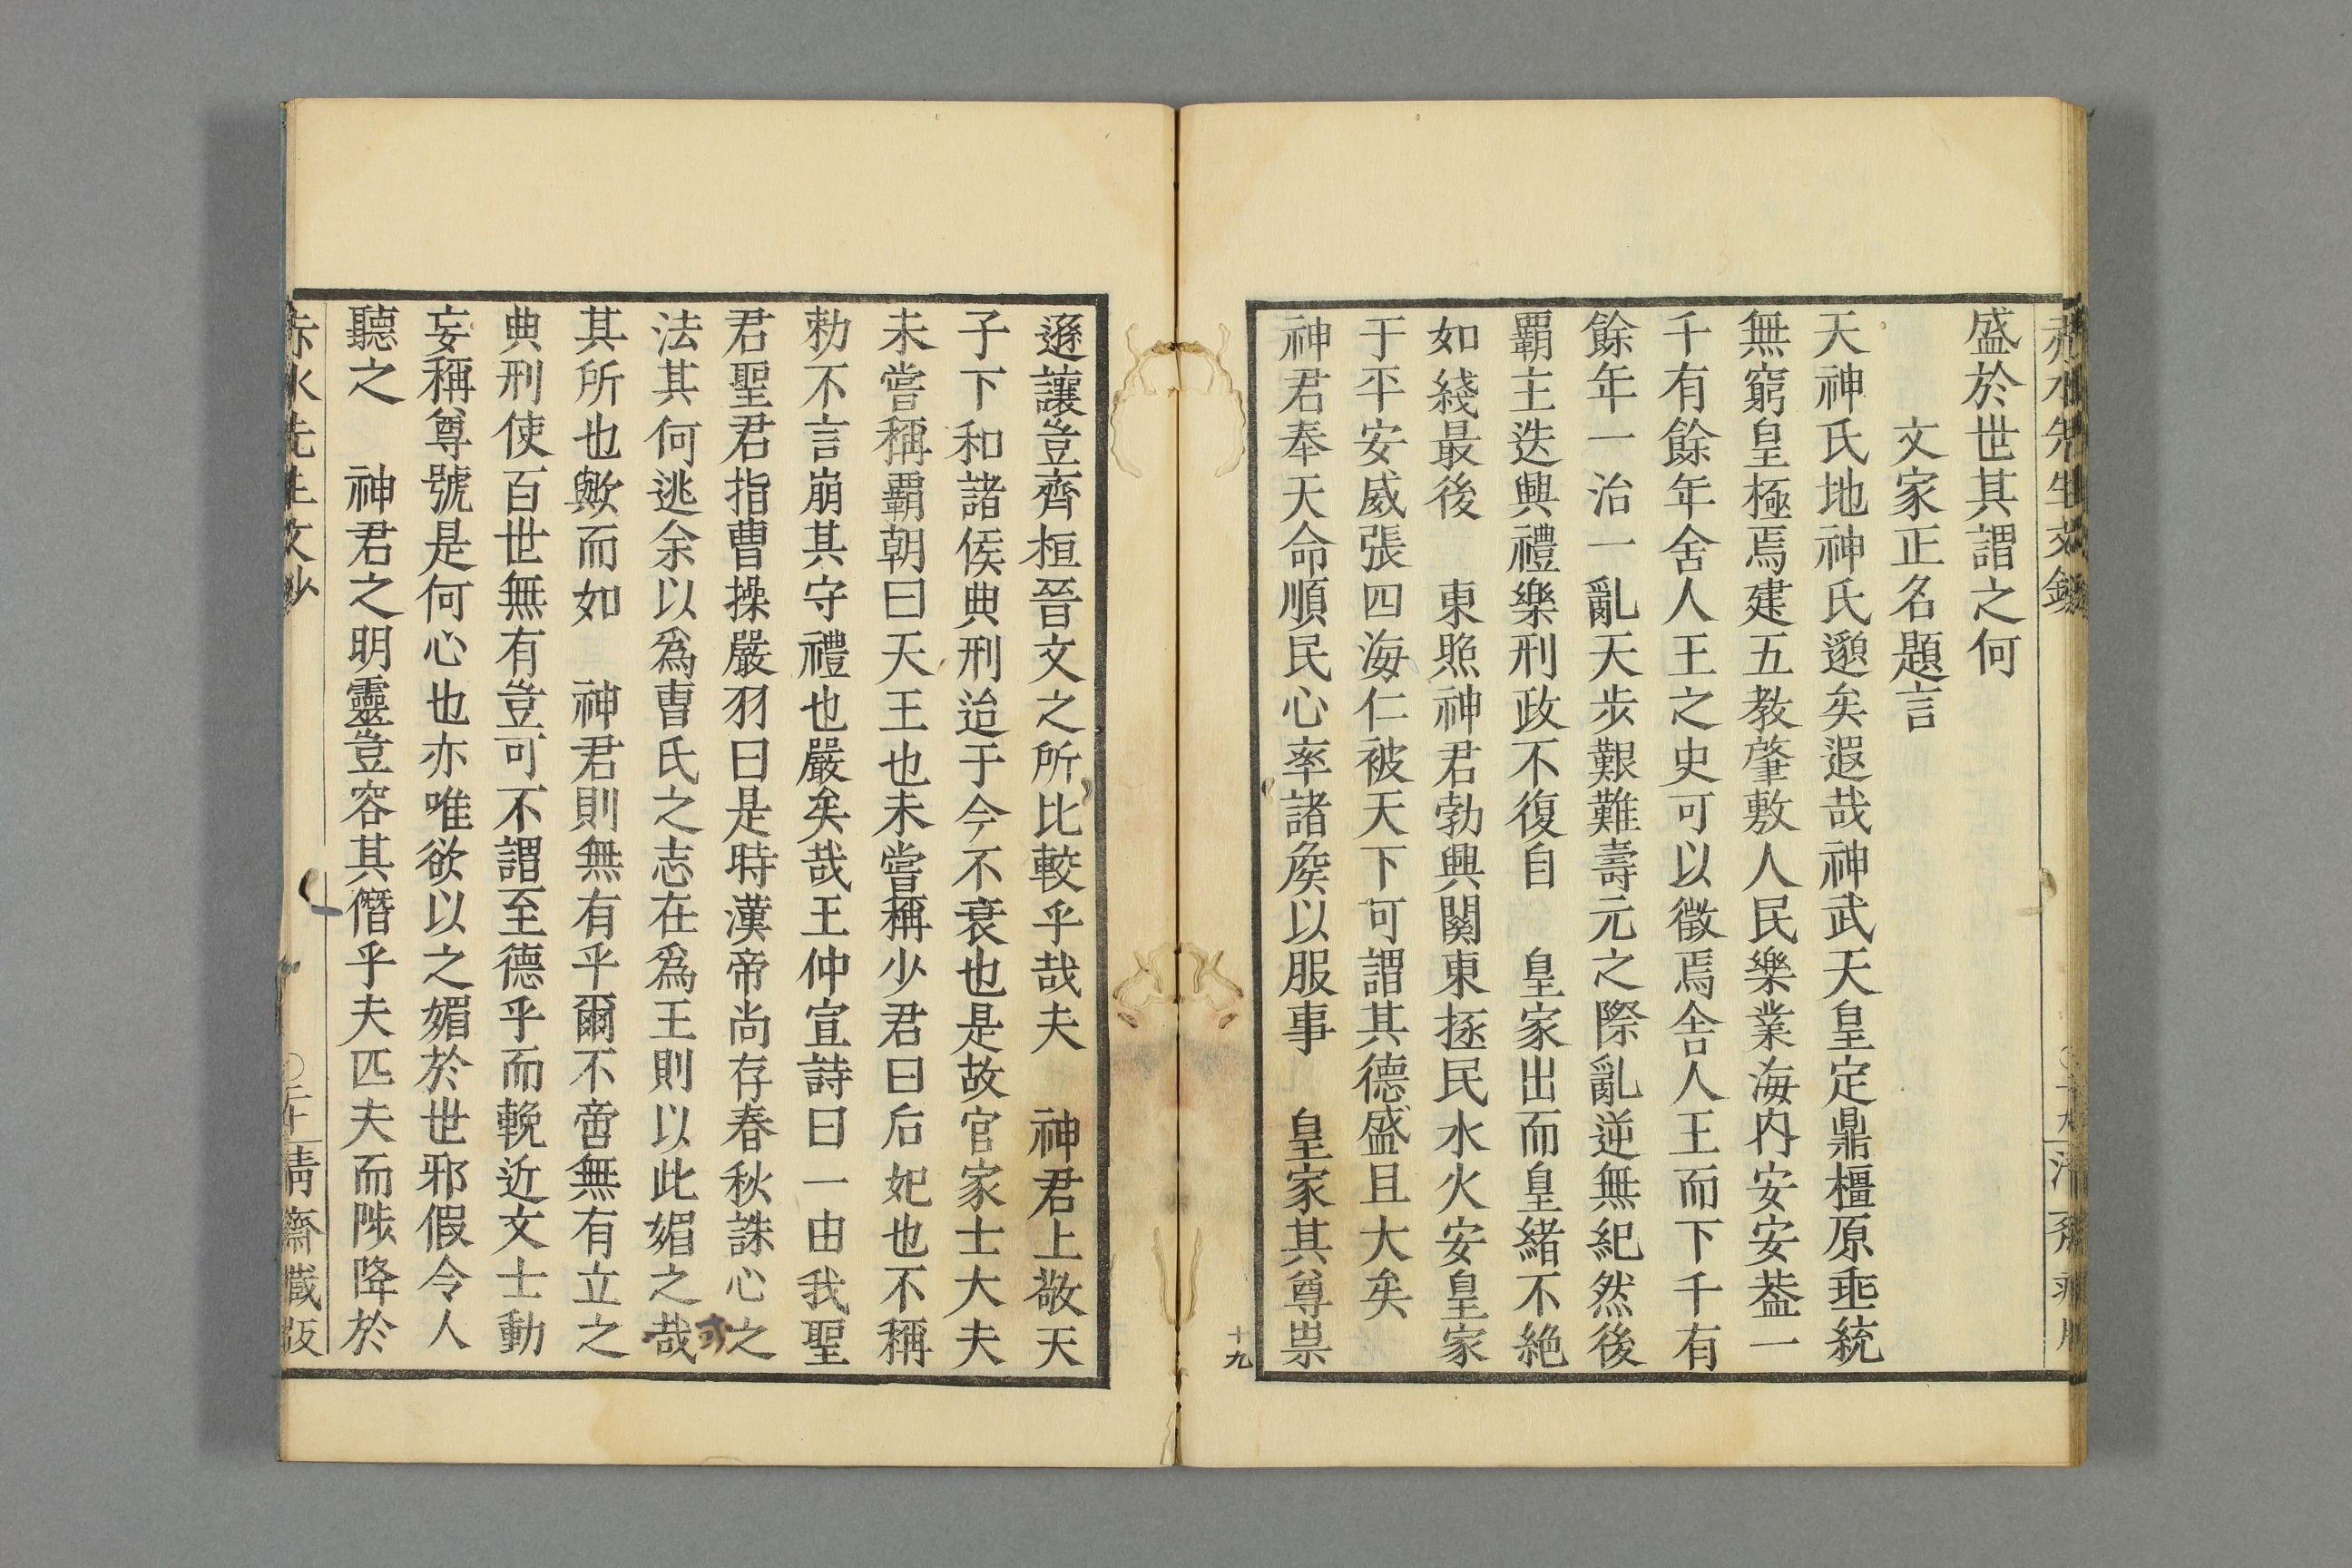 赤水先生文鈔
盛於世其謂之何
文家正名題言
天神氏地神氏邈矣遐哉神武天皇定鼎橿原垂統
無窮皇極焉建五教肇敷人民樂業海内安安葢一
千有餘年舍人王之史可以徵焉舍人王而下千有
餘年一治一亂天步艱難壽元之際亂逆無紀然後
覇主迭興禮樂刑政不復自　皇家出而皇緒不絶
如綫最後　東照神君勃興關東拯民水火安皇家
于平安威張四海仁被天下可謂其德盛且大矣
神君奉天命順民心率諸矦以服事　皇家其尊崇
十九
遜讓豈齊桓晉文之所比較乎哉夫　神君上敬天
子下和諸侯典刑治于今不衰也是故官家士大夫
未嘗稱覇朝曰天王也未嘗稱少君曰后妃也不稱
勅不言崩其守禮也嚴矣哉王仲宣詩曰一由我聖
君聖君指曹操嚴羽曰是時漢帝尚存春秋誅心之
法其何逃余以爲曹氏之志在爲王則以此媚之哉
可
其所也歟而如　神君則無有乎爾不啻無有立之
典刑使百世無有豈可不謂至德乎而輓近文士動
妄稱尊號是何心也亦唯欲以之媚於世邪假令人
聽之　神君之明靈豈容其僭乎夫匹夫而陟降於
赤水先生文鈔
〇二十
靜齋藏版